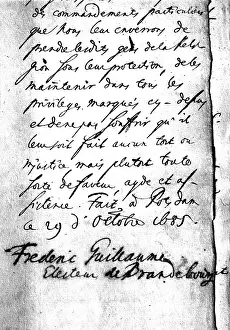 des commandements particuliers
que Nous leur envoirons de
prendre lesdits gens de la Reli-
gion sous leur protection, de les
maintenir dans tous les
privileges, marqués cy-dessus
et de ne pas souffrir qu'il
leur soit fait aucun tort ou
injustice mais plutost toute
sorte de faveur, ayde et as-
sistence. Fait à Potsdam
ce 29 d'Octobre 1685
Frederic Guillaume
Electeur de Brandebourg